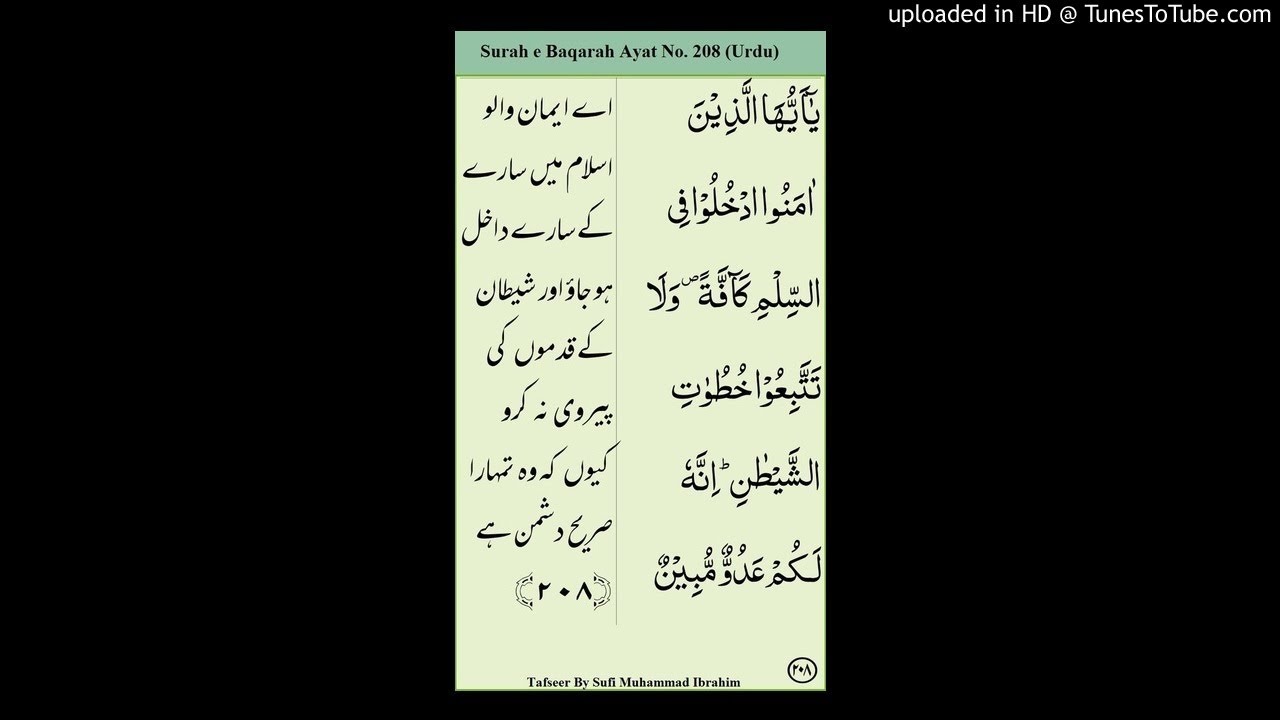 uploaded in HD @ TunesToTube.com
Surah e Baqarah Ayat No. 208 (Urdu)
يٰۤاَيُّهَا الَّذِيْنَ
اٰمَنُوا ادْخُلُوْا فِى
السِّلْمِ كَآفَّةً ۖ وَلَا
تَتَّبِعُوْا خُطُوٰتِ
الشَّيْطٰنِ ؕ اِنَّهٗ
لَـكُمْ عَدُوٌّ مُّبِيْنٌ
اے ایمان والو
اسلام میں سارے
کے سارے داخل
ہو جاؤ اور شیطان
کے قدموں کی
پیروی نہ کرو
کیوں کہ وہ تمہارا
صریح دشمن ہے
﴿۲۰۸﴾
۲۰۸
Tafseer By Sufi Muhammad Ibrahim